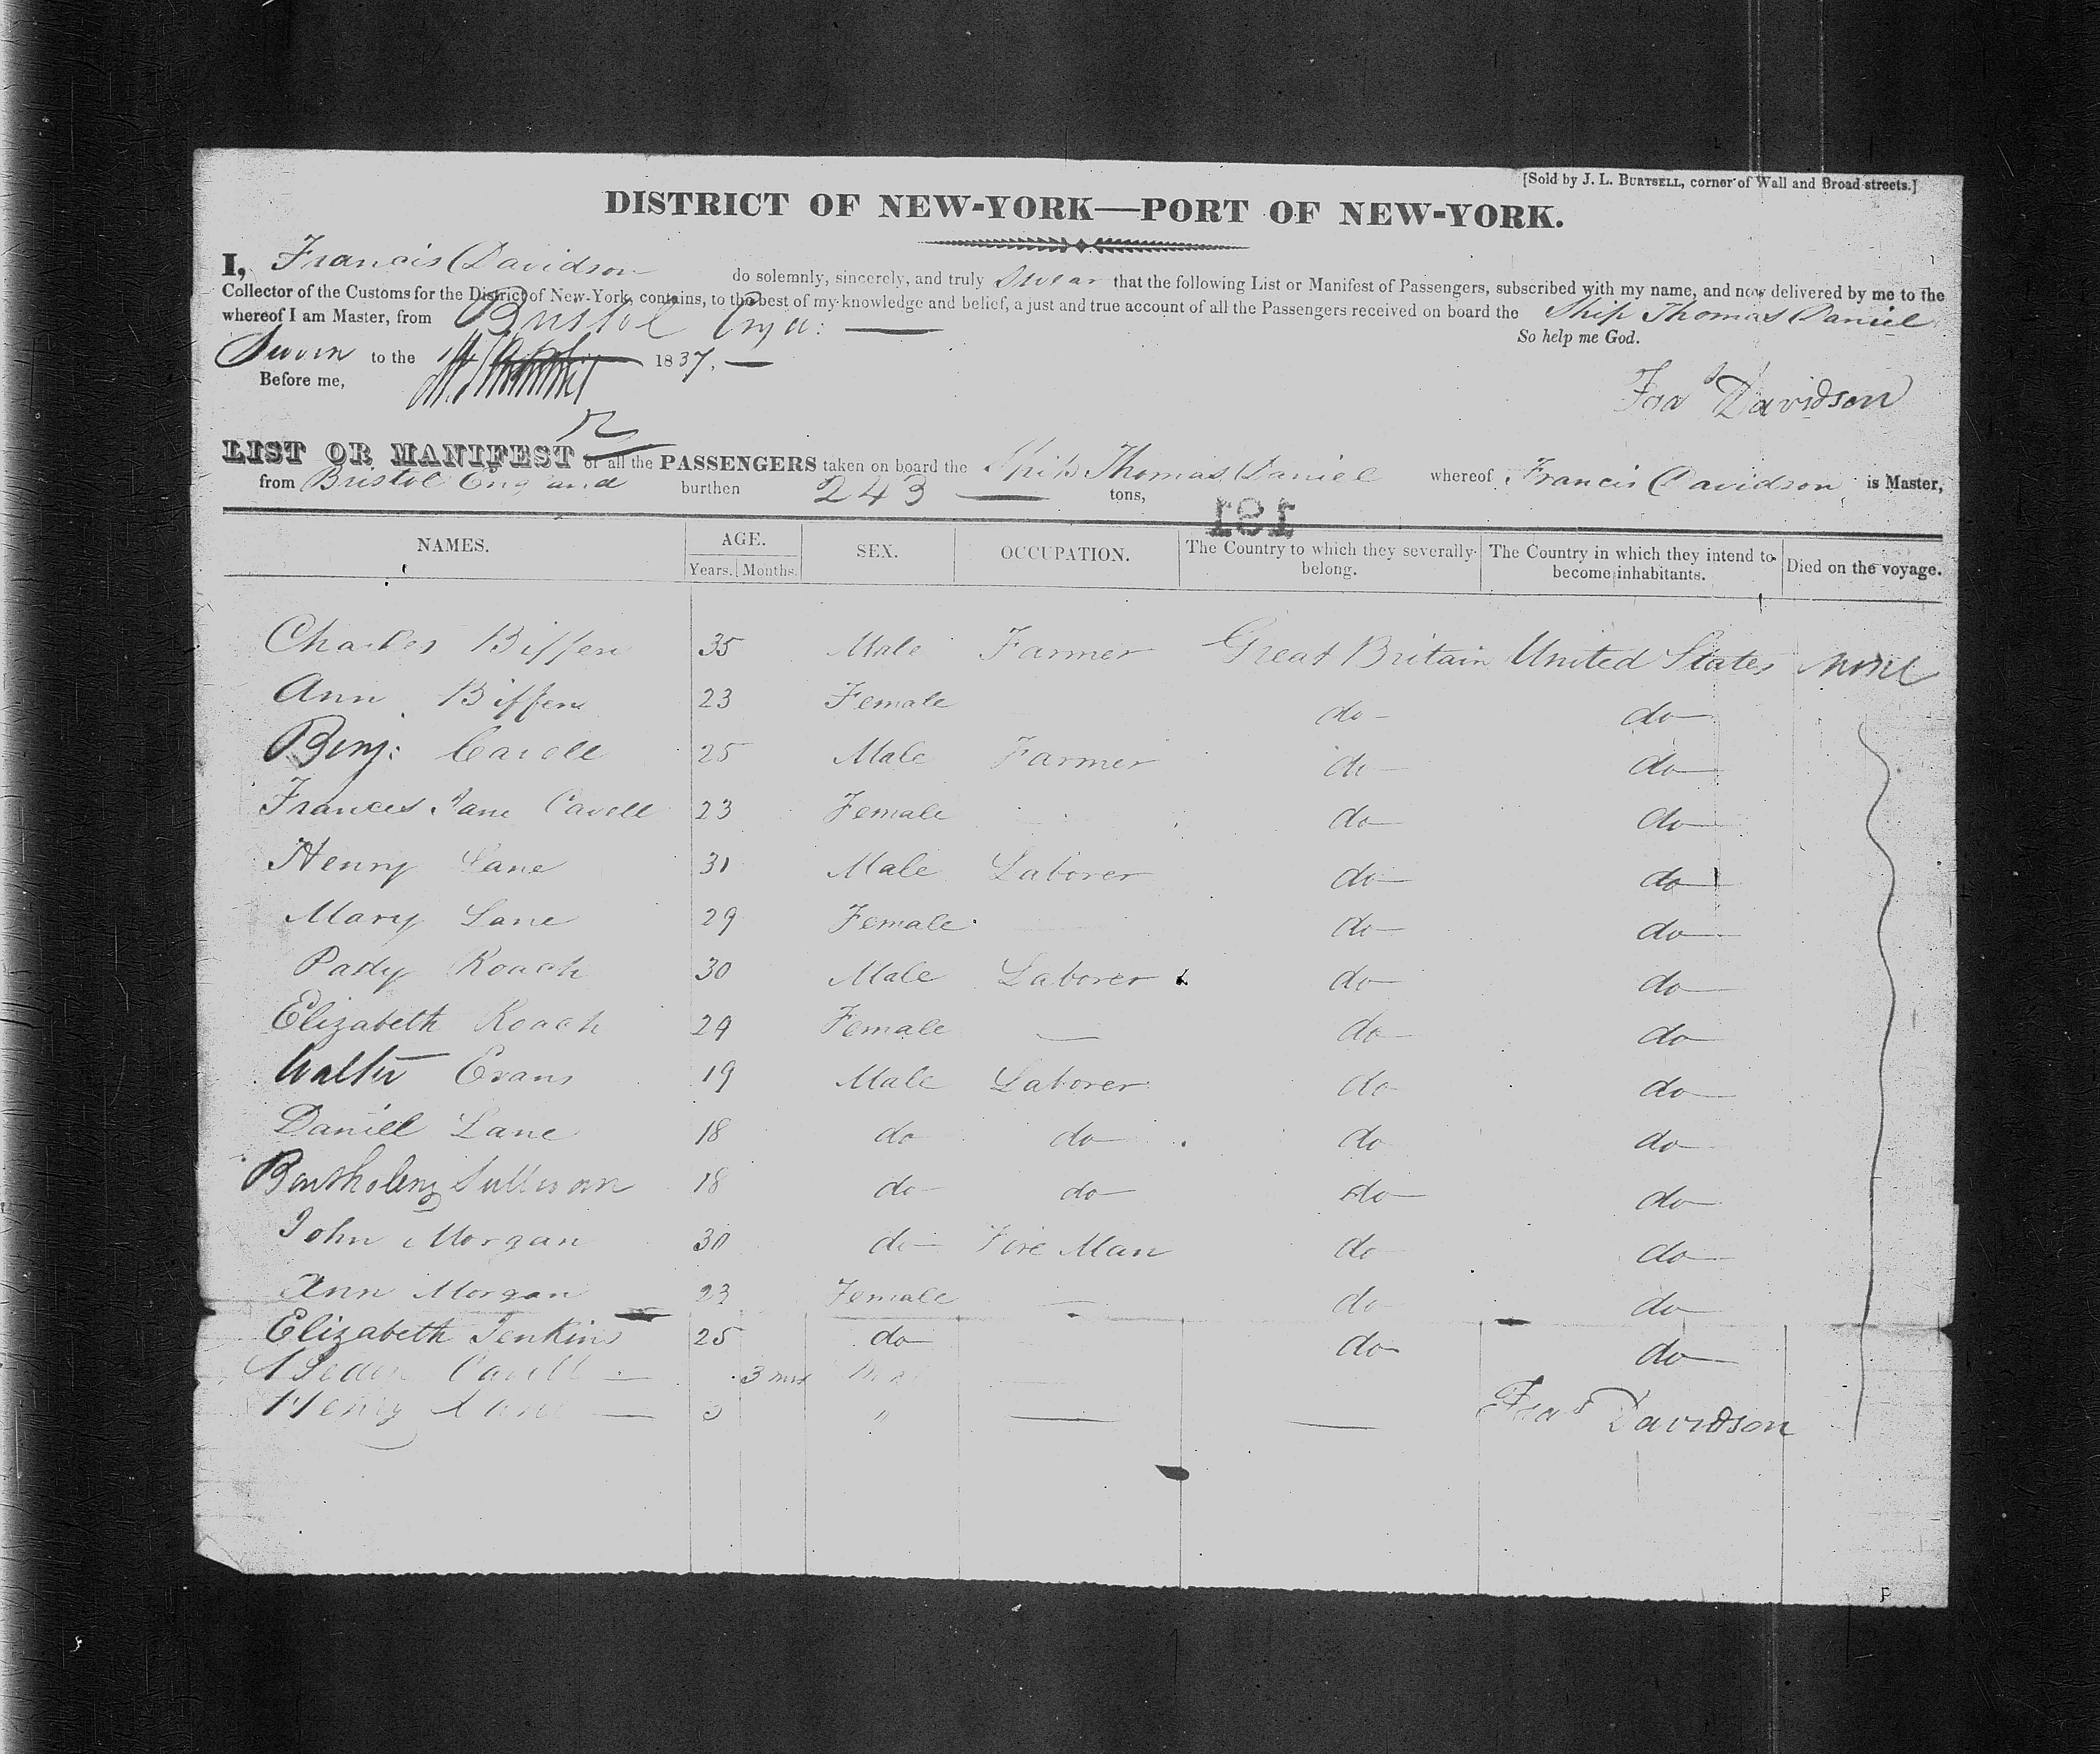 [Sold by J. L. BURTSELL, corner of Wall and Broad streets.]
DISTRICT OF NEW-YORK—PORT OF NEW-YORK.
I, Francis Davidson do solemnly, sincerely, and truly Swear that the following List or Manifest of Passengers, subscribed with my name, and now delivered by me to the
Collector of the Customs for the District of New-York, contains, to the best of my knowledge and belief, a just and true account of all the Passengers received on board the Ship Thomas Daniel
whereof I am Master, from Bristol
So help me God.
Sworn to the 1837.
Before me,
Fras Davidson
LIST OR MANIFEST of all the PASSENGERS taken on board the Ship Thomas Daniel whereof Francis Davidson is Master,
from Bristol England burthen 243 tons,
181
NAMES. AGE. Years. Months. SEX. OCCUPATION. The Country to which they severally belong. The Country in which they intend to become inhabitants. Died on the voyage.
Charles Biffen 35 Male Farmer Great Britain United States None
Ann Biffen 23 Female do do
Benj: Cavell 25 Male Farmer do do
Frances Jane Cavell 23 Female do do
Henry Lane 31 Male Laborer do do
Mary Lane 29 Female do do
Pady Roach 30 Male Laborer do do
Elizabeth Roach 29 Female — do do
Walter Evans 19 Male Laborer do do
Daniel Lane 18 do do do do
Sullivan 18 do do do do
John Morgan 30 do Fire Man do do
Ann Morgan 23 Female — do do
Elizabeth Jenkins 25 do do do
Cavell — 3 mos
Henry Lane — 3 " — —
Fras Davidson